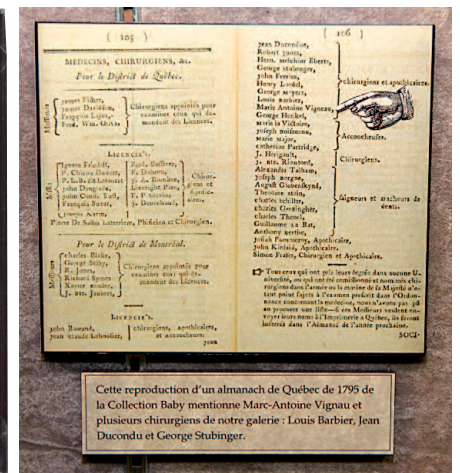 ( 105 )
MEDECINS, CHIRURGIENS, &c.
Pour le District de Québec.
Messieurs
James Fisher,
James Davidson,
François Lajus,
Fred. Wm. Oliva.
Chirurgiens appointés pour
examiner ceux qui de-
mandent des Licences.
LICENCIE's.
Messrs.
P. Chicou Duvert,
John Conrad Just,
François Suzor,
Fred. Rossiere,
F. Duberu,
Chirur-
giens et
Apothi-
caires.
Pierre De Salles Laterriere, Phisicien et Chirurgien.
Pour le District de Montréal.
Messieurs
Charles Blake,
George Selby,
R. Jones,
J. Bte. Jaubert,
Chirurgiens appointés pour
examiner ceux qui de-
mandent des Licences.
LICENCIE's.
John Rowand,
Jean Claude Lehoulier,
chirurgiens, Apothicaires,
et Accoucheurs.
Jean
( 106 )
Jean Ducondue,
Robert Jones,
Henn. Melchior Eberts,
George Stubinger,
John Ferries,
Henry Loedel,
George Meyers,
Louis Barbier,
Marie Antoine Vigneau,
George Henkel,
chirurgiens et apothicaires.
Marie la Victoire,
Joseph Boissonne,
Marie Major,
Catherine Partridge,
Accoucheuses.
J. Herigault,
J. Bte. Rieutord,
Alexandre Talham,
Chirurgiens.
Joseph Borgne,
August Globenskynd,
Theodore Stein,
Charles Schiller,
Charles Greslingher,
Charles Thonel,
Guillaume La Bat,
Anthony Berthe,
saigneurs et arracheurs de
dents.
Josiah Pommeroy, Apothicaire,
John Kinlaid, Apothicaire,
Simon Fraser, Chirurgien et Apothicaire.
☞ Tous ceux qui ont pris leurs degrés dans aucune U-
niversité, ou qui ont été commissionné et nommés chi-
rurgiens dans l'armée ou la marine de sa Majesté n'é-
tant point sujets à l'examen prescrit dans l'Ordon-
nance concernant la médecine, nous n'avons pas pû
en procurer une liste—si ces Messieurs veulent en-
voyer leurs noms à l'Imprimerie à Québec, ils seront
insérés dans l'Almanac de l'année prochaine.
SOCI-
Cette reproduction d'un almanach de Québec de 1795 de
la Collection Baby mentionne Marc-Antoine Vignau et
plusieurs chirurgiens de notre galerie : Louis Barbier, Jean
Ducondu et George Stubinger.